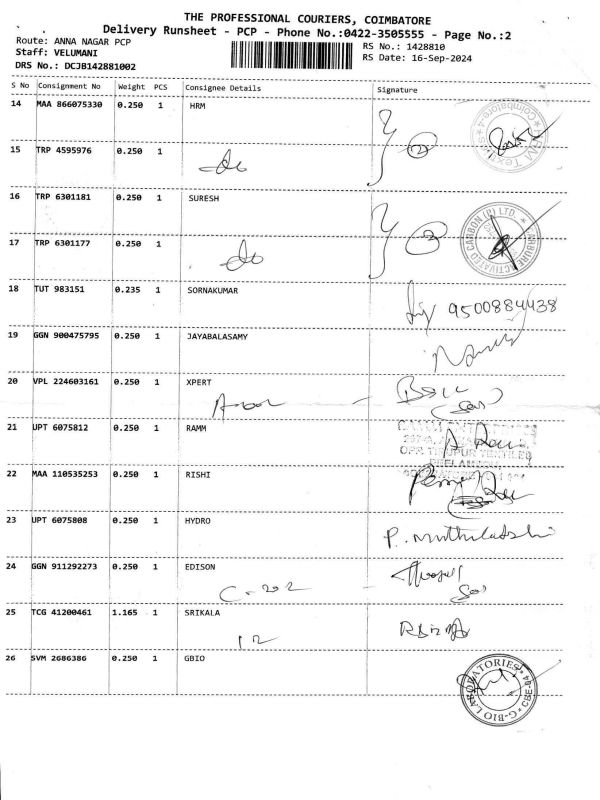 THE PROFESSIONAL COURIERS, COIMBATORE
Delivery Runsheet - PCP - Phone No.:0422-3505555 - Page No.:2
Route: ANNA NAGAR PCP
RS No.: 1428810
Staff: VELUMANI
RS Date: 16-Sep-2024
DRS No.: DCJB142881002
S No Consignment No Weight PCS Consignee Details Signature
14 MAA 866075330 0.250 1 HRM
15 TRP 4595976 0.250 1
do
2
16 TRP 6301181 0.250 1 SURESH
17 TRP 6301177 0.250 1
do
2
18 TUT 983151 0.235 1 SORNAKUMAR
9500884438
19 GGN 900475795 0.250 1 JAYABALASAMY
20 VPL 224603161 0.250 1 XPERT
21 UPT 6075812 0.250 1 RAMM
22 MAA 110535253 0.250 1 RISHI
23 UPT 6075808 0.250 1 HYDRO
P. Muthulakshmi
24 GGN 911292273 0.250 1 EDISON
C-202
25 TCG 41200461 1.165 1 SRIKALA
12
26 SVM 2686386 0.250 1 GBIO
G-BIO LABORATORIES * CBE-04 *